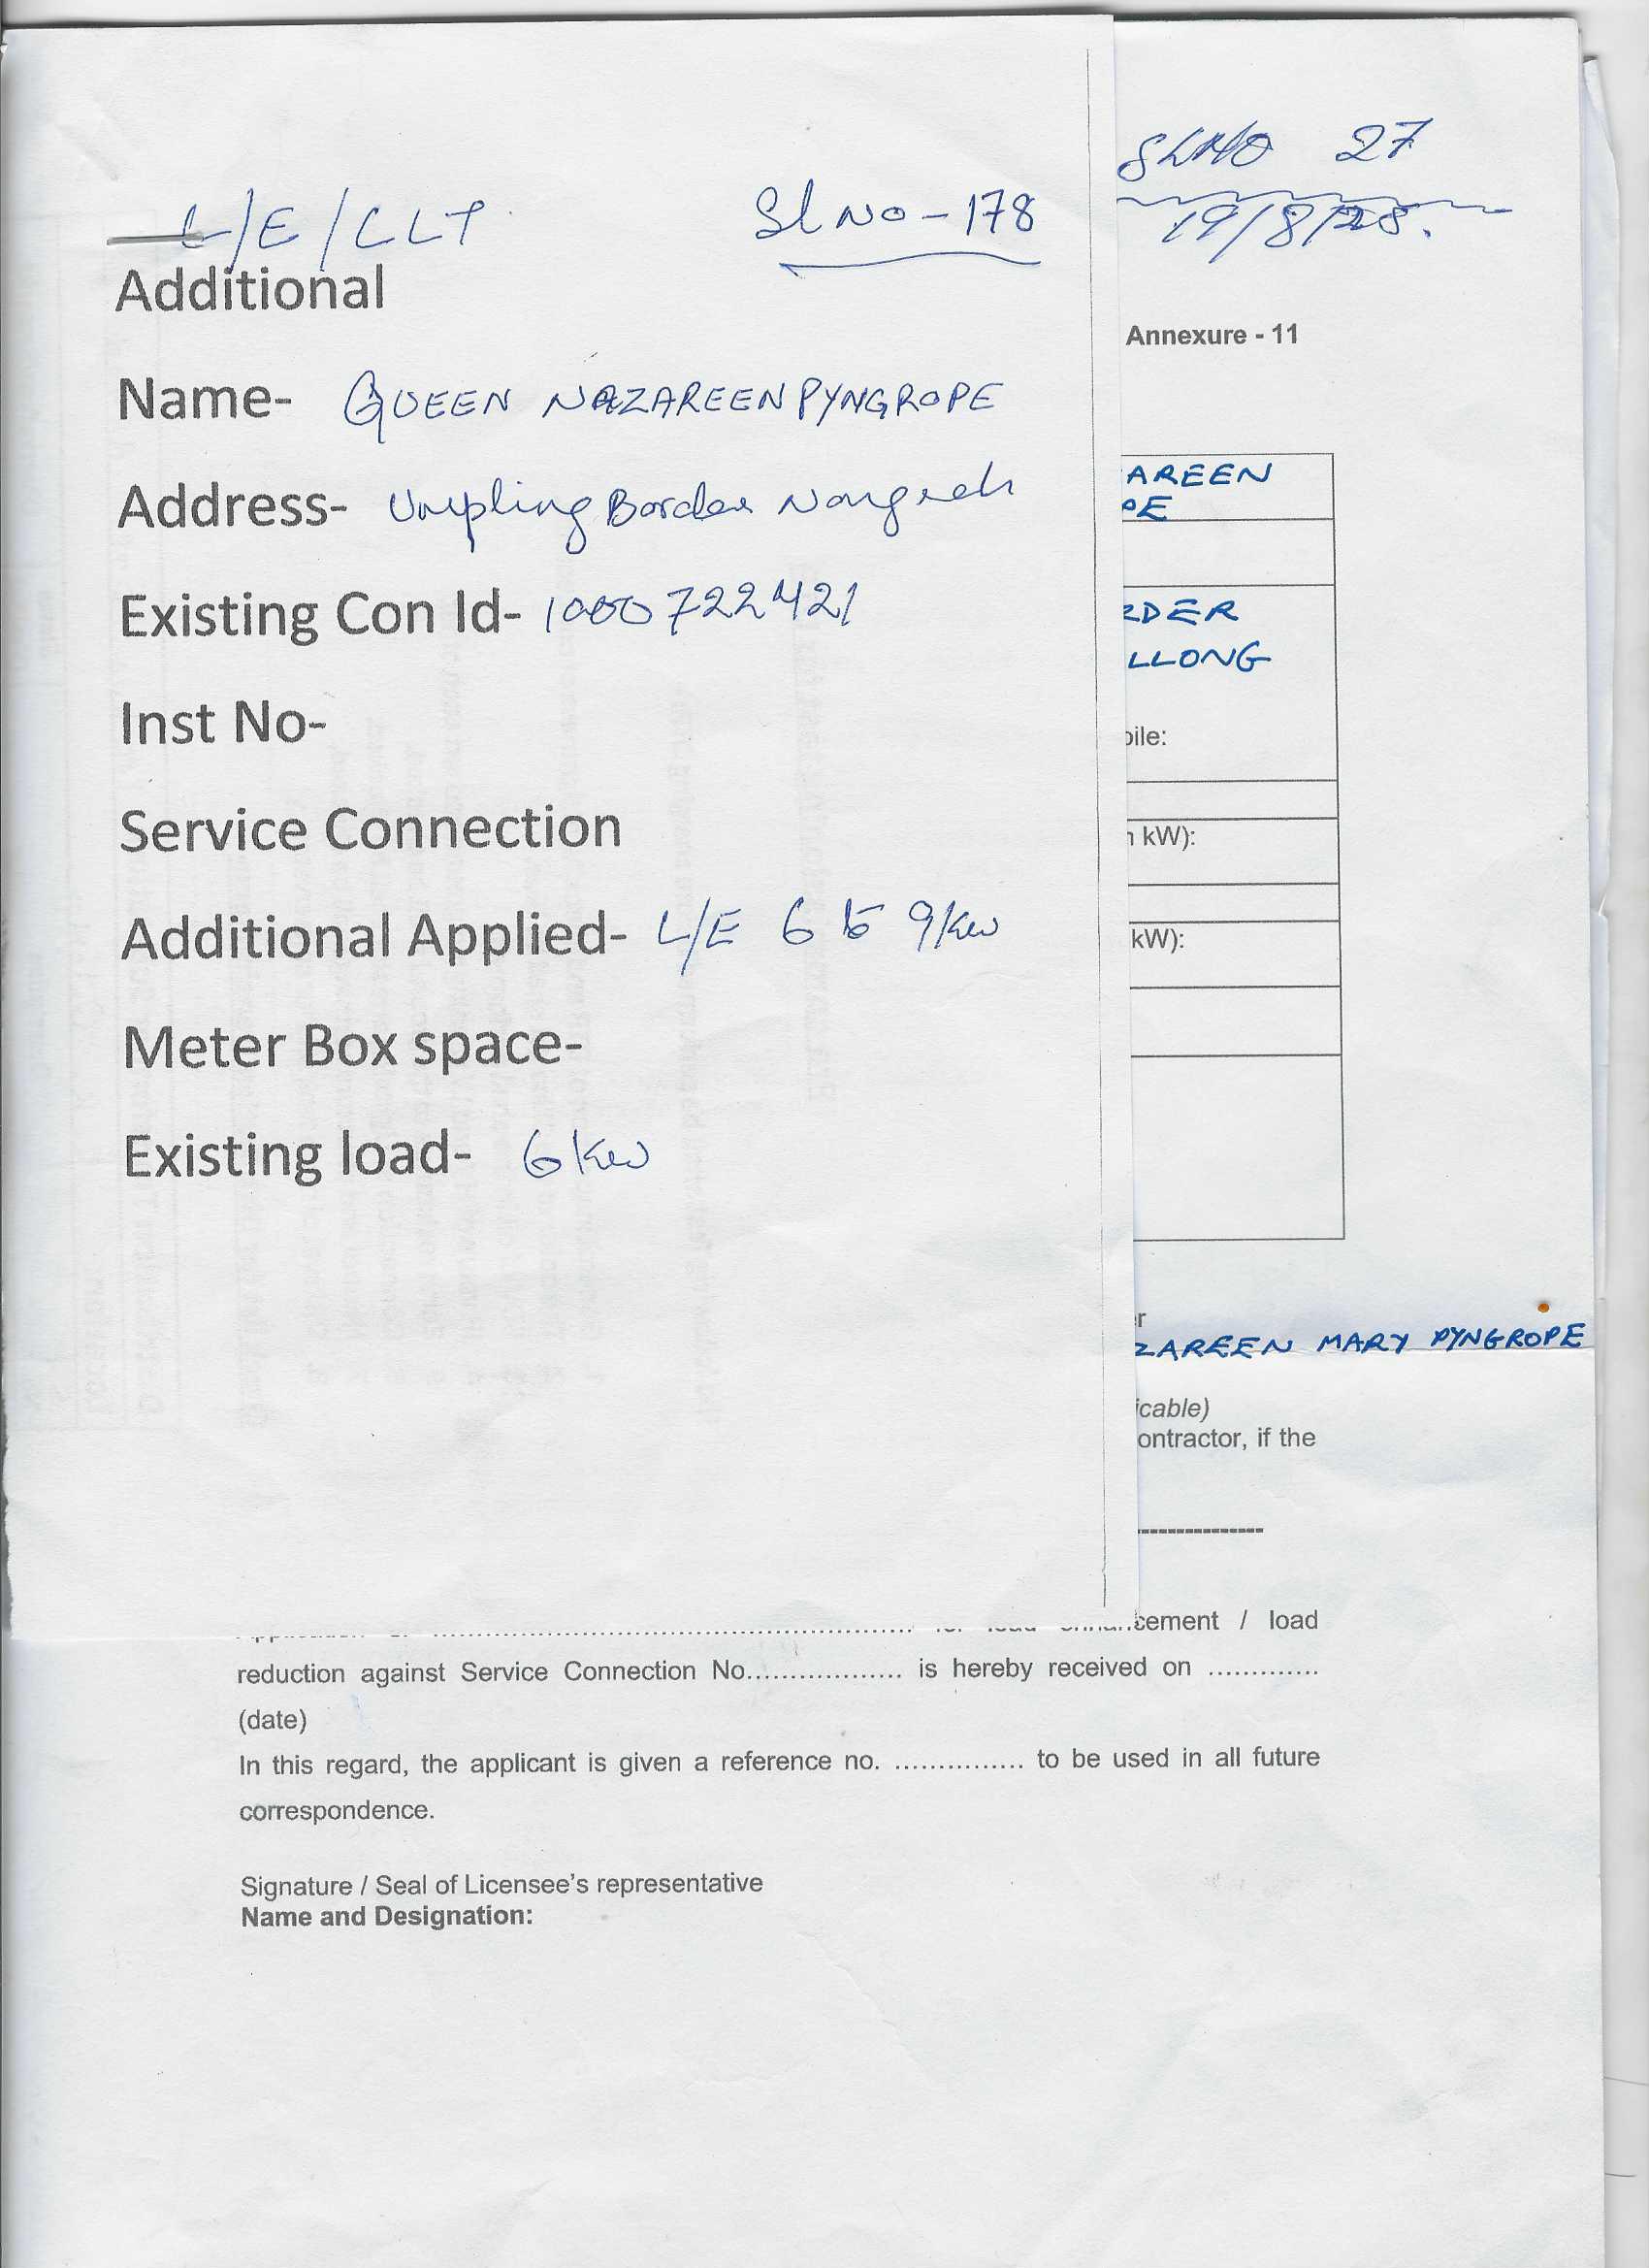 L/E/CLT
Sl No - 178
Additional
Name- QUEEN NAZAREEN PYNGROPE
Address- Umpling Border
Existing Con Id- 1000722421
Inst No-
Service Connection
Additional Applied- L/E 6 to 9 kw
Meter Box space-
Existing load- 6 kw
SLNO 27
19/8/
Annexure - 11
AREEN
PE
RDER
LLONG
bile:
n kW):
kW):
r
ZAREEN MARY PYNGROPE
icable)
ontractor, if the
cement / load
reduction against Service Connection No.................. is hereby received on .............
(date)
In this regard, the applicant is given a reference no. ............... to be used in all future
correspondence.
Signature / Seal of Licensee's representative
Name and Designation: